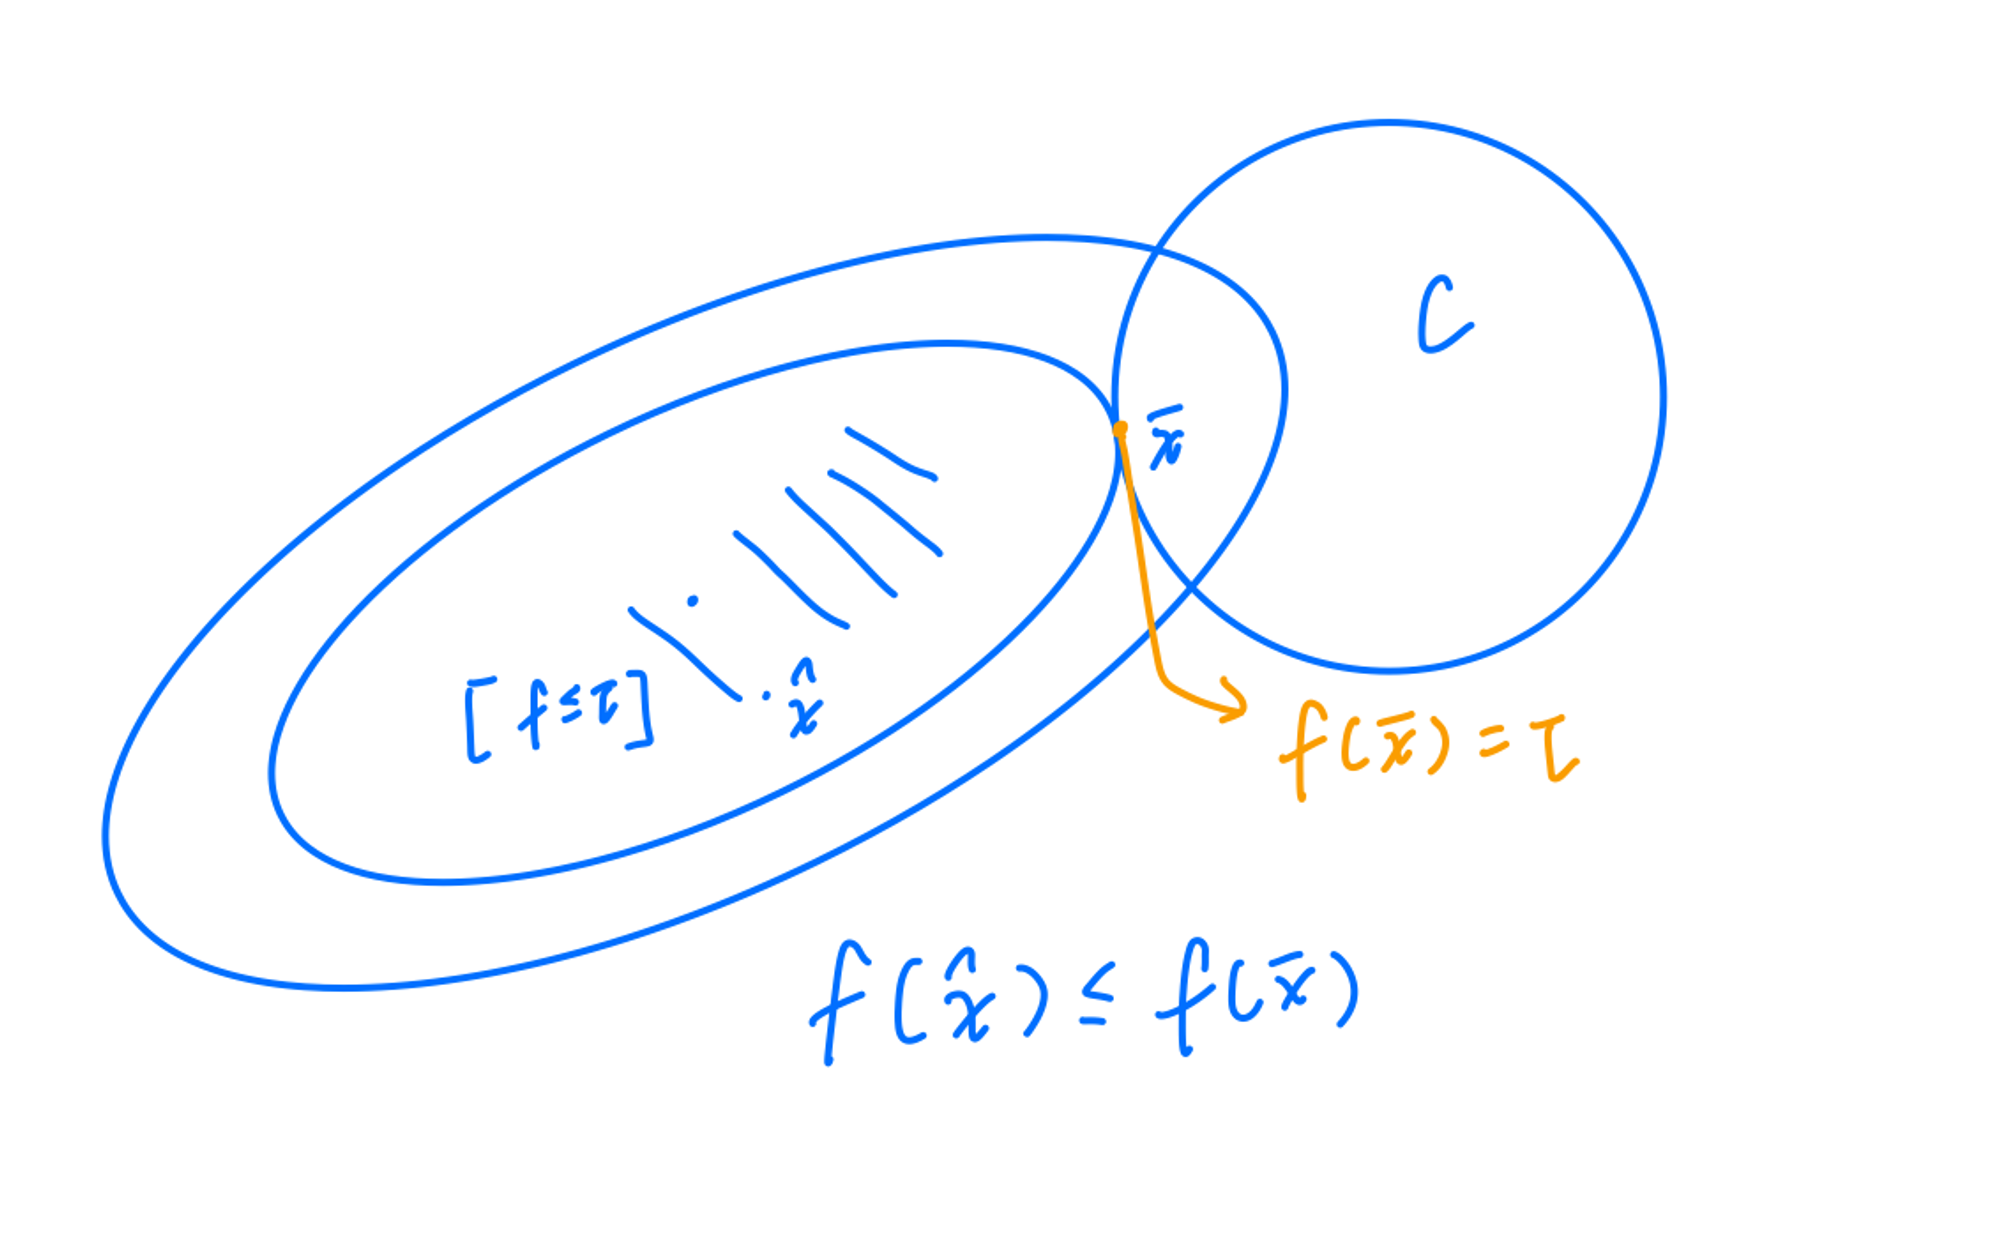 C
x̄
[f≤τ]
x̂
f(x̄)=τ
f(x̂)≤f(x̄)